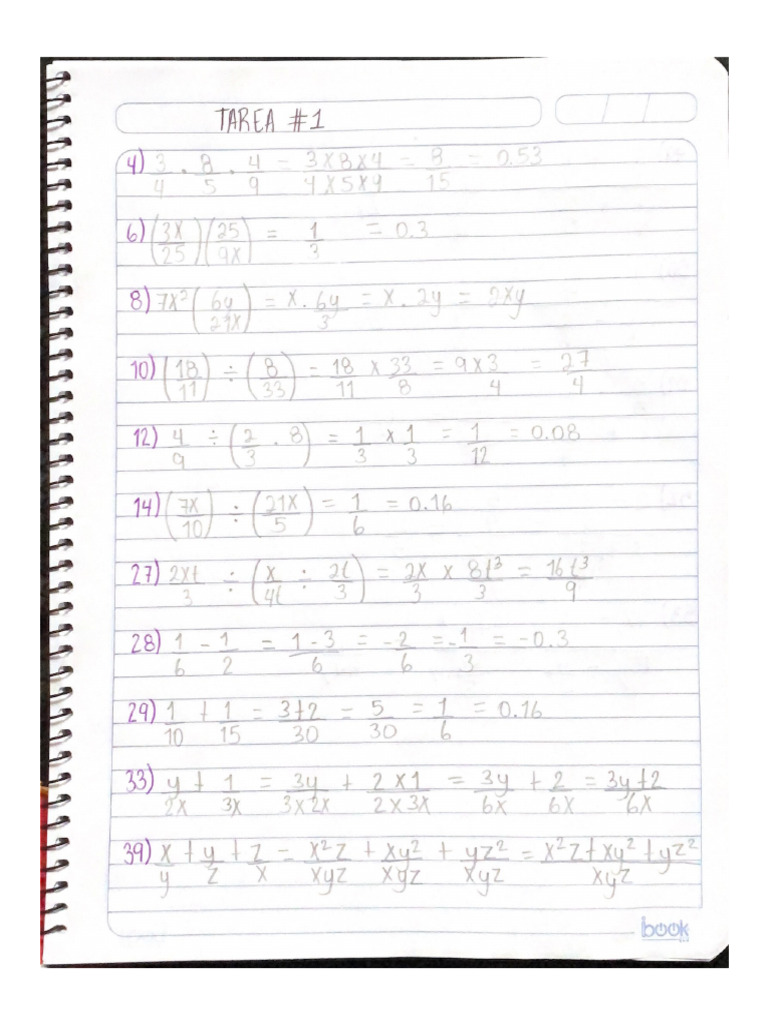 TAREA #1
4) 3/4 . 8/5 . 4/9 = 3x8x4/4x5x9 = 8/15 = 0.53
6) (3x/25)(25/9x) = 1/3 = 0.3
8) 7x² (6y/21x) = x . 6y/3 = x . 2y = 2xy
10) (18/11) ÷ (8/33) = 18/11 x 33/8 = 9x3/4 = 27/4
12) 4/9 ÷ (2/3 . 8) = 1/3 x 1/3 = 1/12 = 0.08
14) (7x/10) ÷ (21x/5) = 1/6 = 0.16
27) 2xt/3 ÷ (x/4t ÷ 2t/3) = 2x/3 x 8t³/3 = 16t³/9
28) 1/6 - 1/2 = 1-3/6 = -2/6 = -1/3 = -0.3
29) 1/10 + 1/15 = 3+2/30 = 5/30 = 1/6 = 0.16
33) y/2x + 1/3x = 3y/3x2x + 2x1/2x3x = 3y/6x + 2/6x = 3y+2/6x
39) x/y + y/z + z/x = x²z/xyz + xy²/xyz + yz²/xyz = x²z+xy²+yz²/xyz
ibook